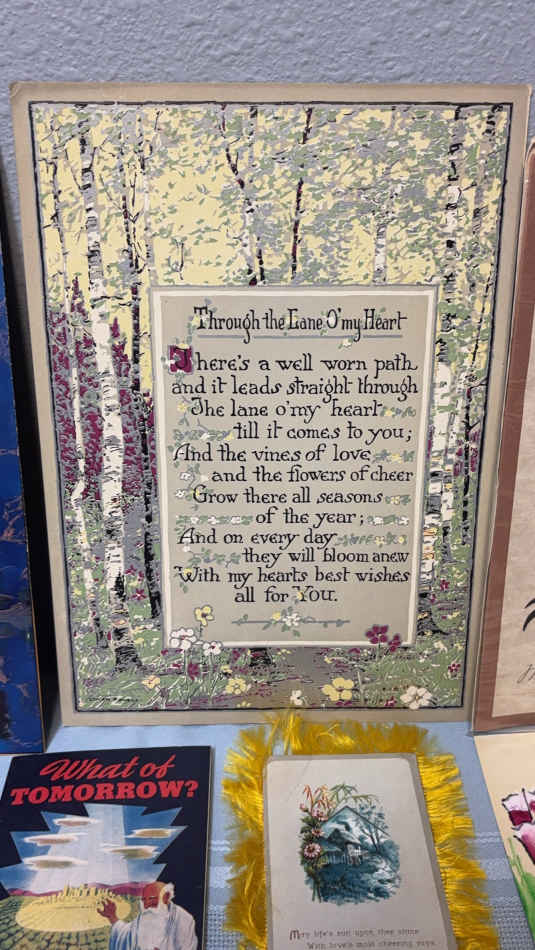 Through the Lane O' my Heart
There's a well worn path
and it leads straight through
The lane o' my heart
till it comes to you;
And the vines of love
and the flowers of cheer
Grow there all seasons
of the year;
And on every day
they will bloom anew
With my hearts best wishes
all for You.
What of
TOMORROW?
May life's sun upon thee shine
With love's most cheering rays